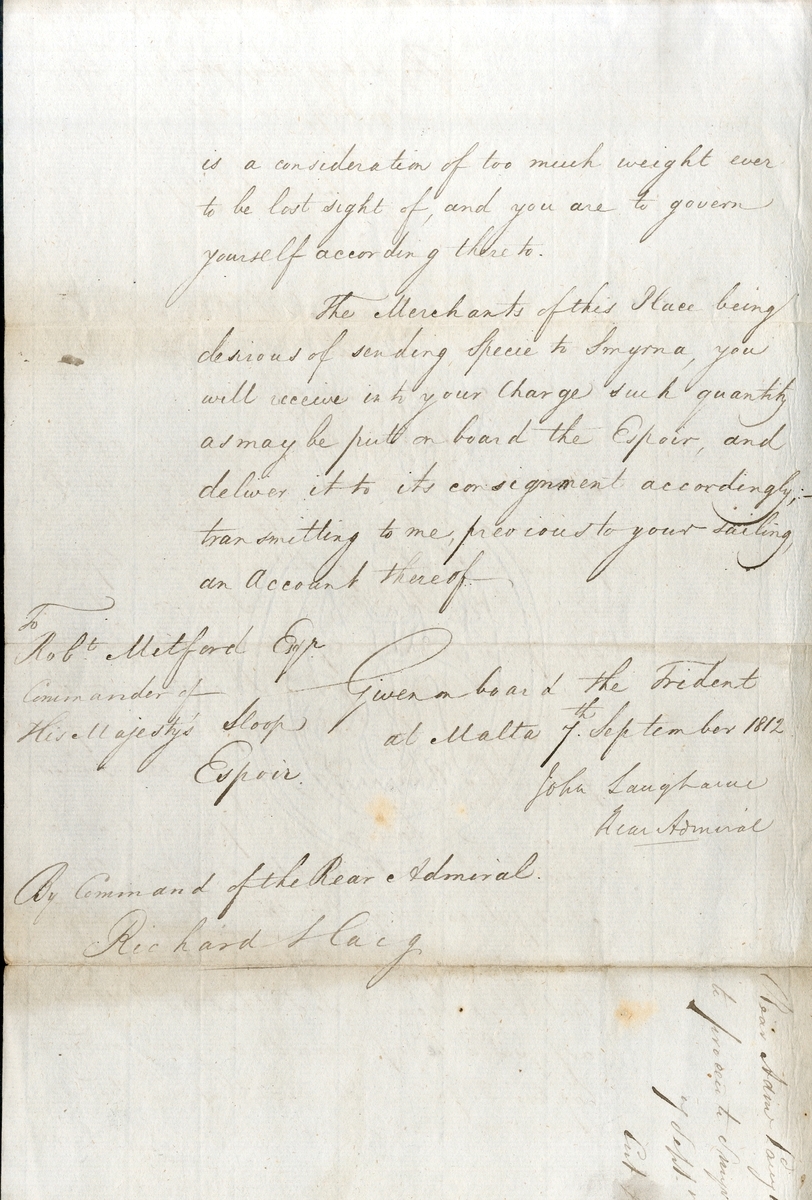 is a consideration of too much weight ever
to be lost sight of, and you are to govern
yourself according thereto.
The Merchants of this Place being
desirous of sending Specie to Smyrna, you
will receive into your Charge such quantity
as may be put on board the Espoir, and
deliver it to its consignment accordingly;-
transmitting to me, previous to your sailing,
an Account thereof
To
Robt. Mitford Esqr
Commander of
His Majesty's Sloop
Espoir.
Given on board the Trident
at Malta 7th. September 1812
John Laugharne
Rear Admiral
By Command of the Rear Admiral.
Richard Haig
Rear Adml
to proceed to Smy
7 Sept.